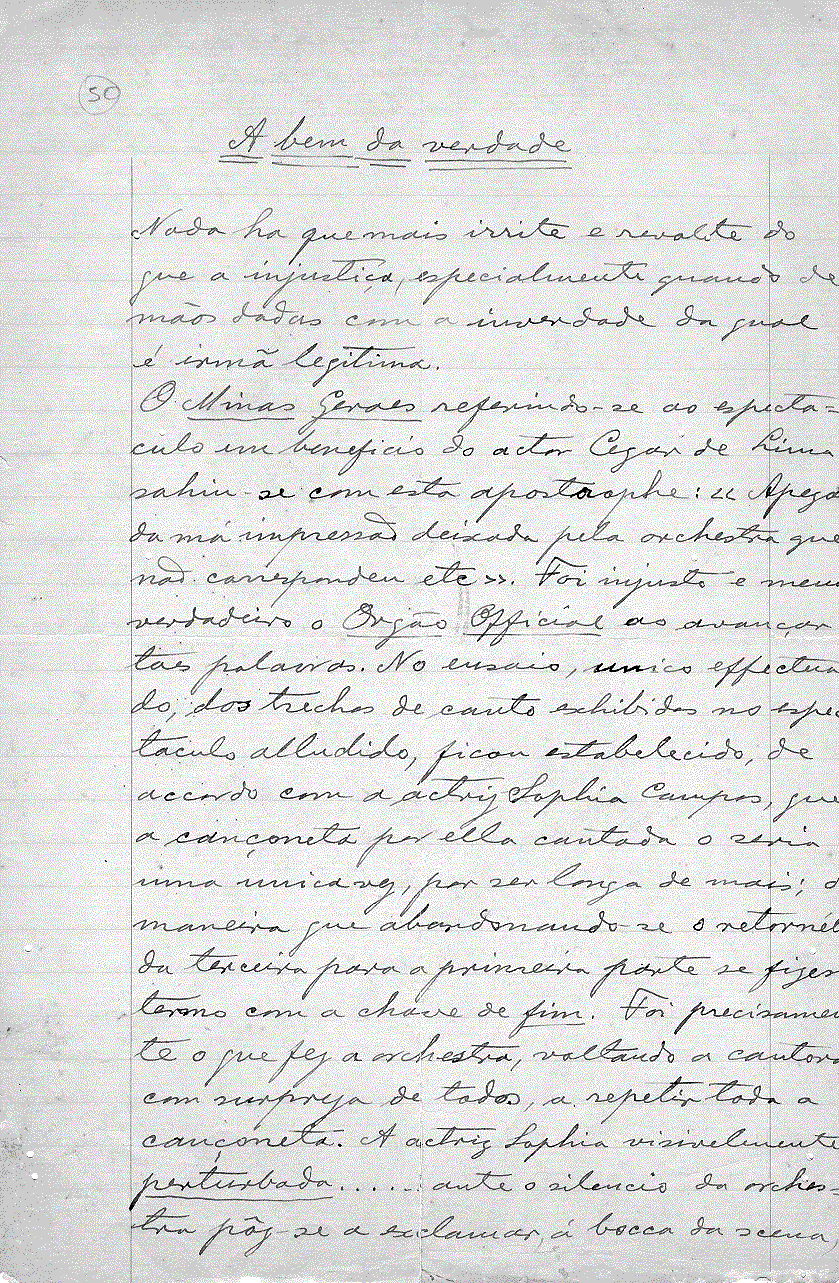 50
A bem da verdade
Nada ha que mais irrite e revolte do
que a injustiça, especialmente quando de
mãos dadas com a inverdade da qual
é irmã legitima.
O Minas Geraes referindo-se ao especta=
culo em beneficio do actor Cezar de Lima
sahiu-se com esta apostrophe: « Apeza
da má impressão deixada pela orchestra que
não correspondeu etc ». Foi injusto e menu
verdadeiro o Orgão Official ao avançar
taes palavras. No ensaio, unico effectua
do, dos trechos de canto exhibidos no espec
taculo alludido, ficou estabelecido, de
accordo com a actriz Sophia Campos, que
a cançoneta por ella cantada o seria
uma unica vez, por ser longa de mais; d
maneira que abandonando-se o retornél
da terceira para a primeira parte se fizes
termo com a chave de fim. Foi precisamen
te o que fez a orchestra, voltando a cantora
com surpreza de todos, a repetir toda a
cançoneta. A actriz Sophia visivelmente
perturbada...... ante o silencio da orches=
tra pôz-se a exclamar, á bocca da scena,